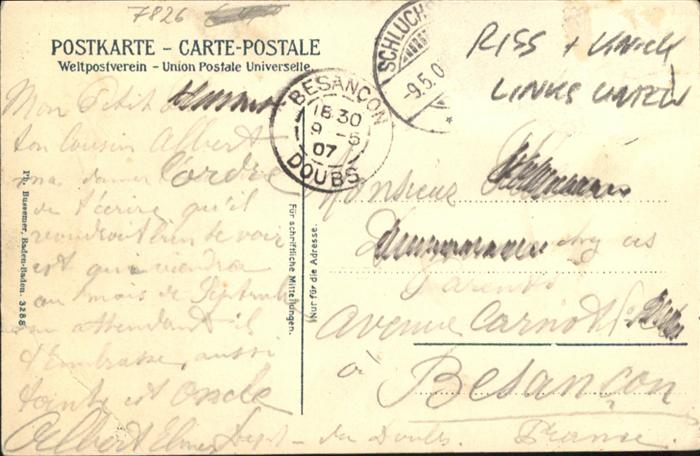 7826
POSTKARTE – CARTE-POSTALE
Weltpostverein – Union Postale Universelle.
SCHLUCH
-9.5.0
RISS + KNICK
LINKS UNTEN
BESANÇON
18 30
9 -5
07
DOUBS
Mon Petit
ton cousin Albert
ma donner l'ordre
de t'écrire qu'il
voudrait bien te voir
est qui viendra
au mois de Septembre
en attendant il
t'embrasse, aussi
tante est Oncle
Albert
Ph. Bussemer, Baden-Baden. 3285
Für schriftliche Mitteilungen.
Nur für die Adresse.
Monsieur
chez ses
parents
avenue Carnot
à Besançon
Doubs. France.